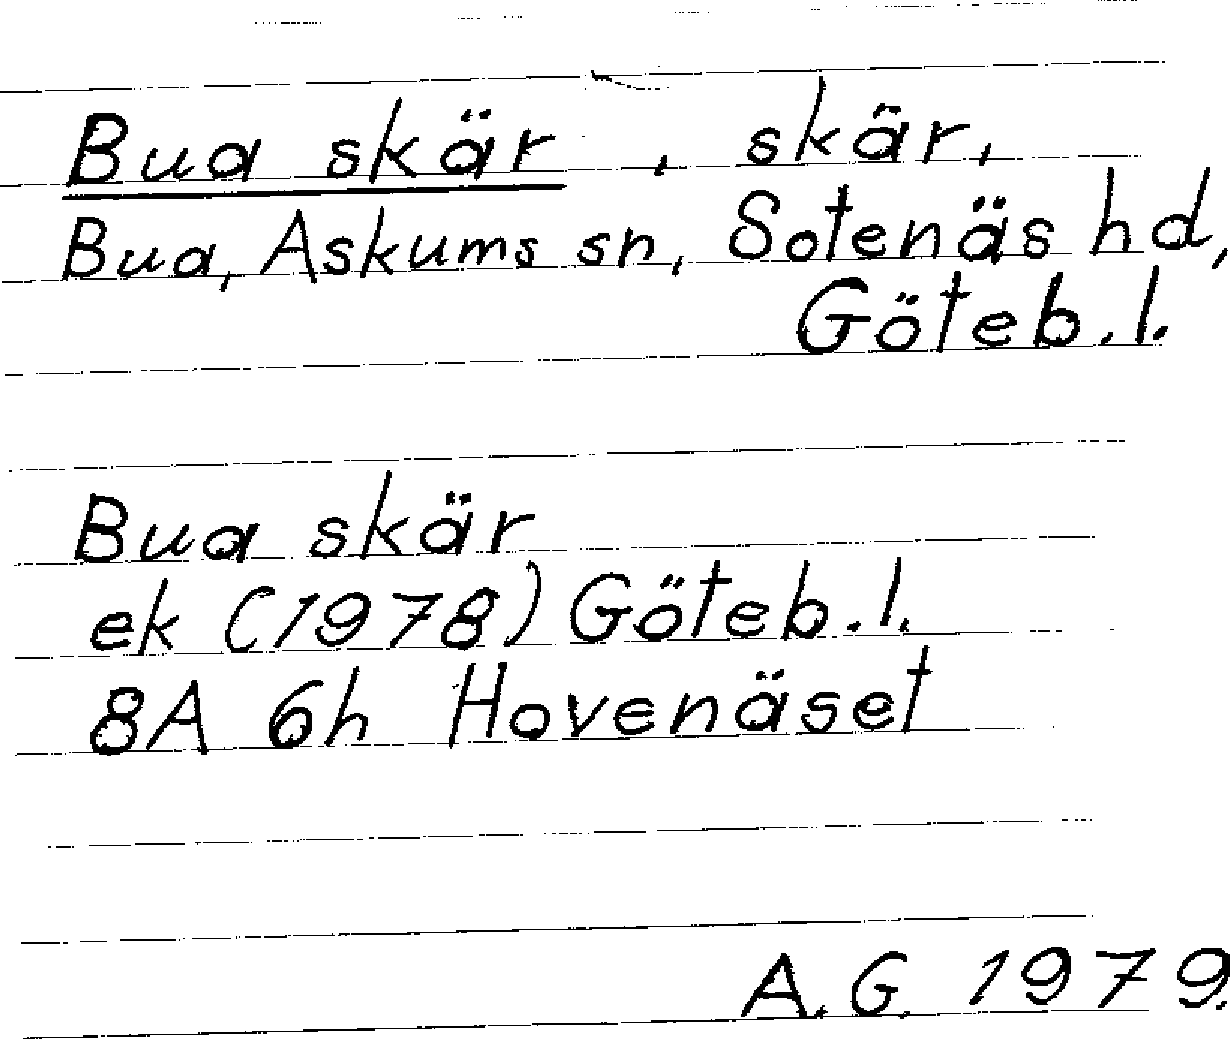 Bua skär, skär,
Bua, Askums sn, Sotenäs hd,
Göteb. l.
Bua skär
ek (1978) Göteb. l.
8A 6h Hovenäset
A. G. 1979.